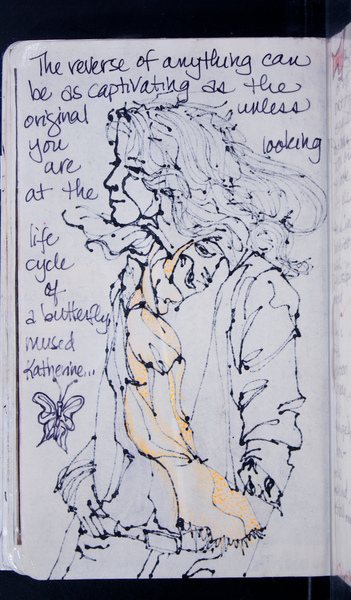 The reverse of anything can
be as captivating as the
original unless
you looking
are
at the
life
cycle
of
a butterfly,
mused
Katherine...